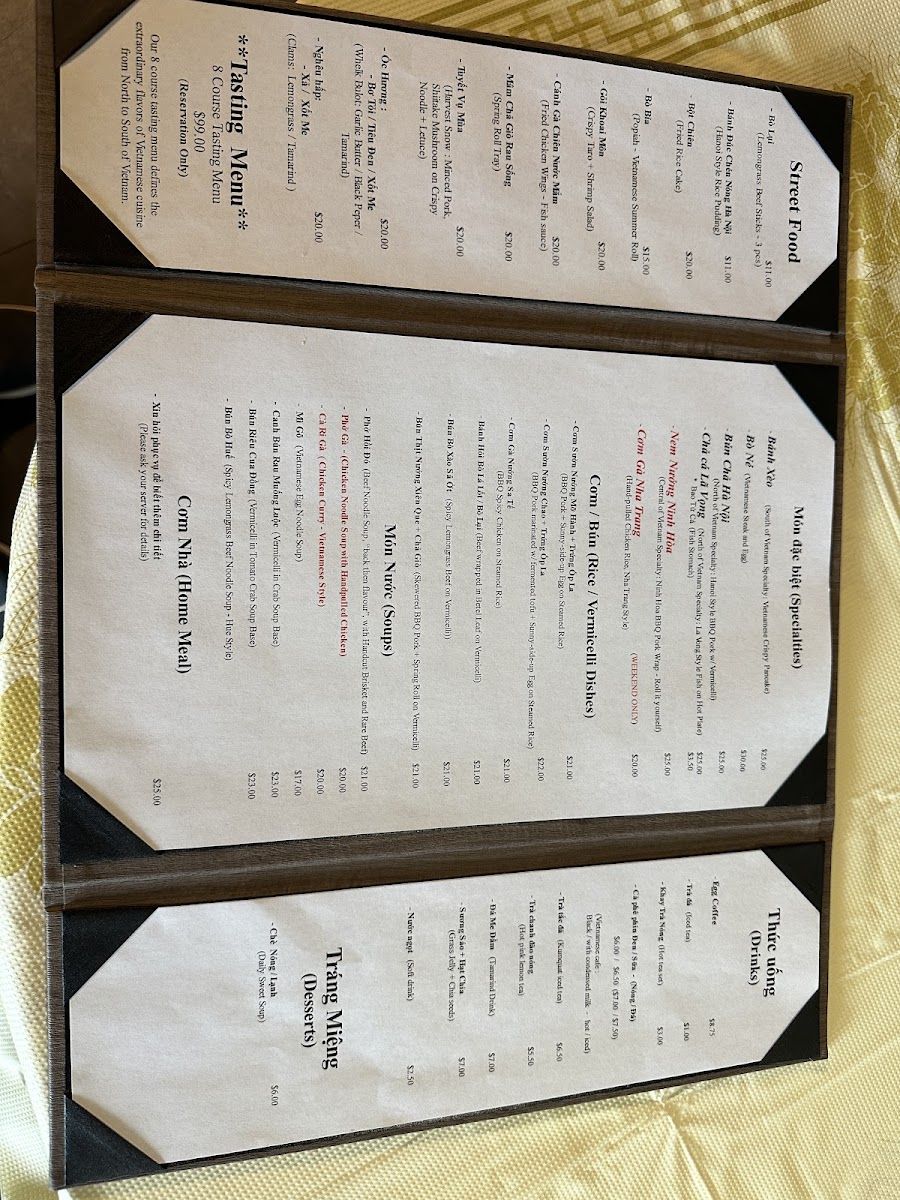 Street Food
- Bò Lụi $11.00
(Lemongrass Beef Sticks - 3 pcs)
- Bánh Đúc Chén Nóng Hà Nội $11.00
(Hanoi Style Rice Pudding)
- Bột Chiên $20.00
(Fried Rice Cake)
- Bò Bía $15.00
(Popiah - Vietnamese Summer Roll)
- Gỏi Khoai Môn $20.00
(Crispy Taro + Shrimp Salad)
- Cánh Gà Chiên Nước Mắm $20.00
(Fried Chicken Wings - Fish sauce)
- Mâm Chả Giò Rau Sống $20.00
(Spring Roll Tray)
- Tuyết Vụ Mùa $20.00
(Harvest Snow : Minced Pork,
Shiitake Mushroom on Crispy
Noodle + Lettuce)
- Ốc Hương : $20.00
- Bơ Tỏi / Tiêu Đen / Xốt Me
(Whelk Bulot: Garlic Butter / Black Peper /
Tamarind)
- Nghêu hấp: $20.00
- Xả / Xốt Me
(Clams: Lemongrass / Tamarind )
**Tasting Menu**
8 Course Tasting Menu
$99.00
(Reservation Only)
Our 8 course tasting menu defines the
extraordinary flavors of Vietnamese cuisine
from North to South of Vietnam.
Món đặc biệt (Specialties)
- Bánh Xèo $25.00
(South of Vietnam Specialty: Vietnamese Crispy Pancake)
- Bò Né (Vietnamese Steak and Egg) $30.00
- Bún Chả Hà Nội $25.00
(North of Vietnam Specialty: Hanoi Style BBQ Pork w/ Vermicelli)
- Chả cá Lã Vọng (North of Vietnam Specialty: La Vong Style Fish on Hot Plate) $25.00
* Bao Tử Cá (Fish Stomach) $3.50
- Nem Nướng Ninh Hòa $25.00
(Central of Vietnam Specialty : Ninh Hoa BBQ Pork Wrap - Roll it yourself)
- Cơm Gà Nha Trang (WEEKEND ONLY) $20.00
(Hand-pulled Chicken Rice, Nha Trang Style)
Cơm / Bún (Rice / Vermicelli Dishes)
- Cơm Sườn Nướng Mỡ Hành + Trứng Ốp La $21.00
(BBQ Pork + Sunny-side-up Egg on Steamed Rice)
- Cơm Sườn Nướng Chao + Trứng Ốp La $22.00
(BBQ Pork marinated w/ fermented tofu + Sunny-side-up Egg on Steamed Rice)
- Cơm Gà Nướng Sa Tế $21.00
(BBQ Spicy Chicken on Steamed Rice)
- Bánh Hỏi Bò Lá Lốt / Bò Lụi (Beef wrapped in Betel Leaf on Vermicelli) $21.00
- Bún Bò Xào Sả Ớt (Spicy Lemongrass Beef on Vermicelli) $21.00
- Bún Thịt Nướng Xiên Que + Chả Giò (Skewered BBQ Pork + Spring Roll on Vermicelli) $21.00
Món Nước (Soups)
- Phở Hồi Đó (Beef Noodle Soup, "back then flavour", with Handcut Brisket and Rare Beef) $21.00
- Phở Gà - (Chicken Noodle Soup with Handpulled Chicken) $20.00
- Cà Ri Gà ( Chicken Curry - Vietnamese Style) $20.00
- Mì Gõ (Vietnamese Egg Noodle Soup) $17.00
- Canh Bún Rau Muống Luộc (Vermicelli in Crab Soup Base) $23.00
- Bún Riêu Cua Đồng (Vermicelli in Tomato Crab Soup Base) $23.00
- Bún Bò Huế (Spicy Lemongrass Beef Noodle Soup - Hue Style)
Cơm Nhà (Home Meal)
- Xin hỏi phục vụ để biết thêm chi tiết $25.00
(Please ask your server for details)
Thức uống
(Drinks)
- Egg Coffee $8.75
- Trà đá (Iced tea) $1.00
- Khay Trà Nóng (Hot tea set) $3.00
- Cà phê phin Đen / Sữa - (Nóng / Đá)
$6.00 / $6.50 ($7.00 / $7.50)
(Vietnamese cafe :
Black / with condensed milk - hot / iced)
- Trà tắc đá (Kumquat iced tea) $6.50
- Trà chanh đào nóng $5.50
(Hot pink lemon tea)
- Đá Me Dầm (Tamarind Drink) $7.00
- Sương Sáo + Hạt Chia $7.00
(Grass Jelly + Chia seeds)
- Nước ngọt (Soft drink) $2.50
Tráng Miệng
(Desserts)
- Chè Nóng / Lạnh $6.00
(Daily Sweet Soup)